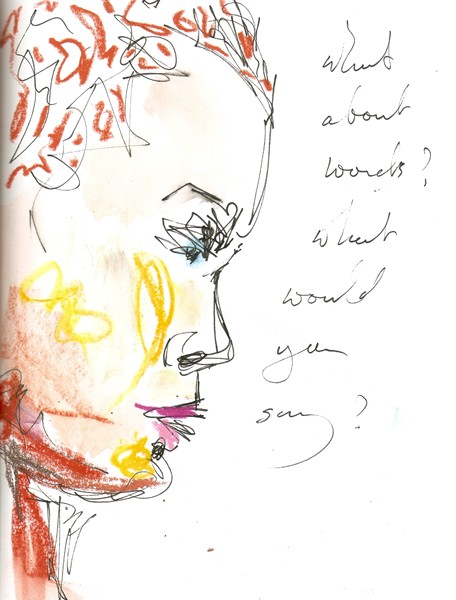 what
about
words?
what
would
you
say?